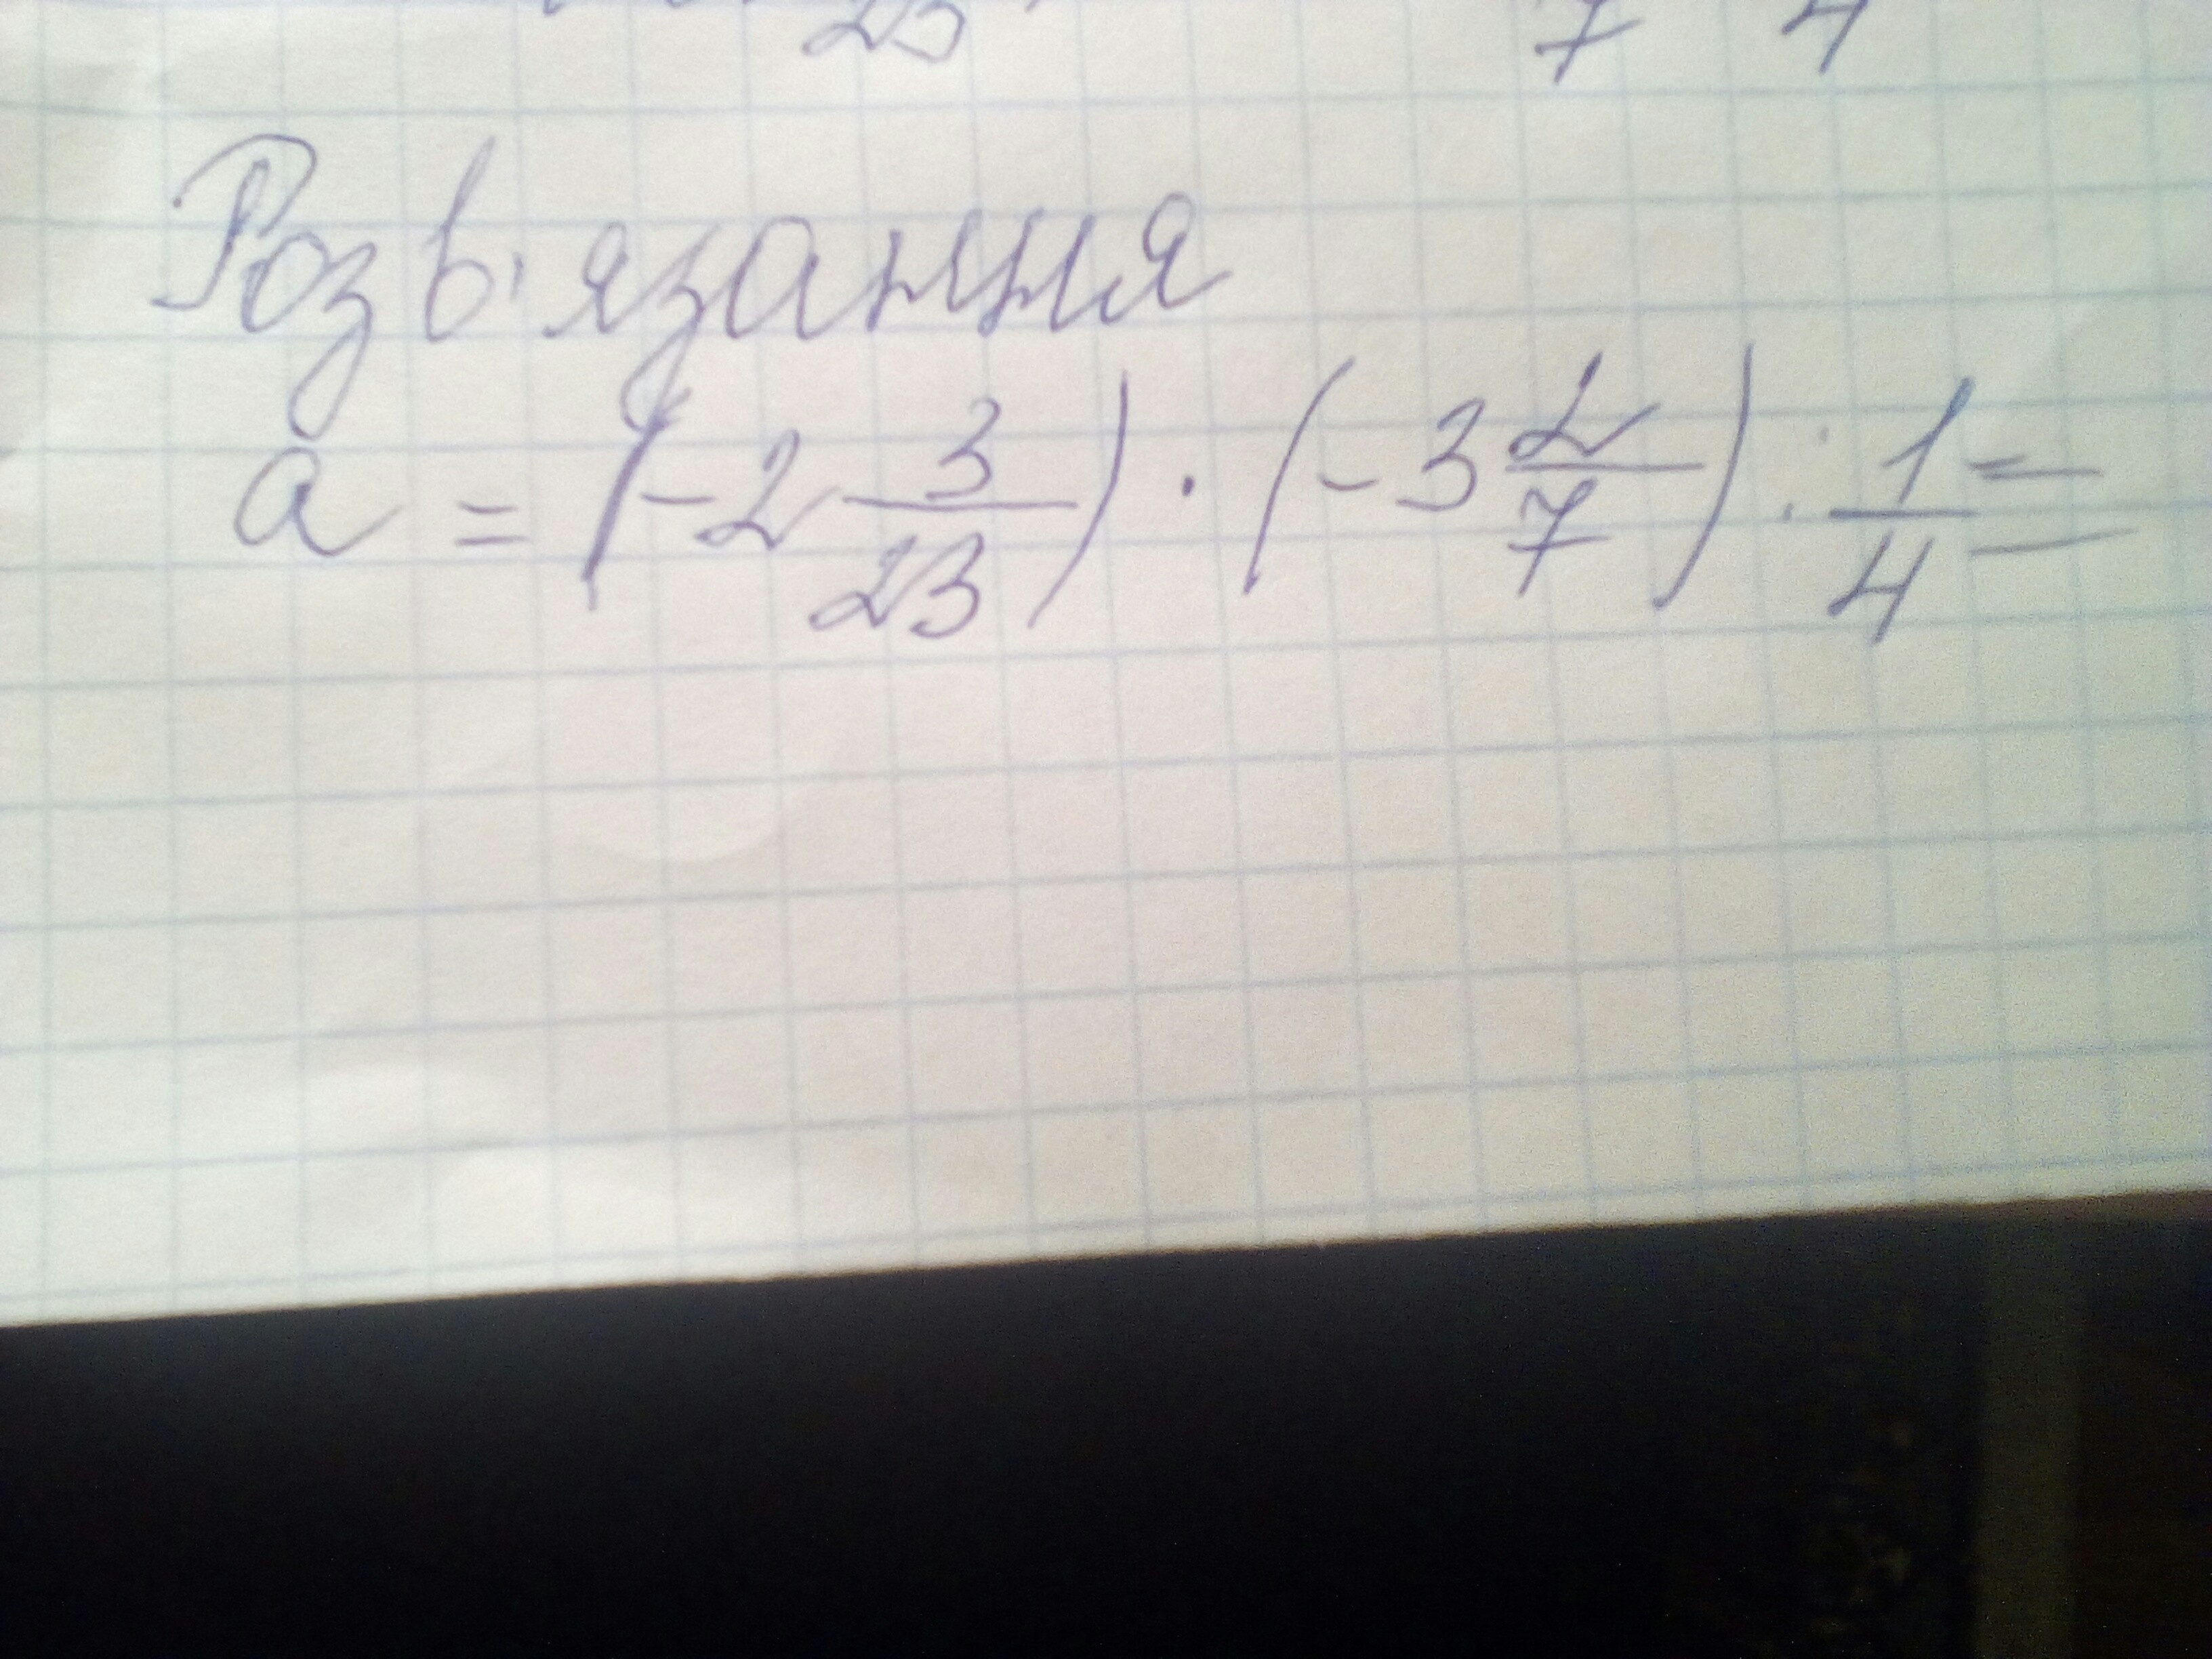 23 7 4
Розв'язання
a = (-2 3/23) · (-3 2/7) : 1/4 =